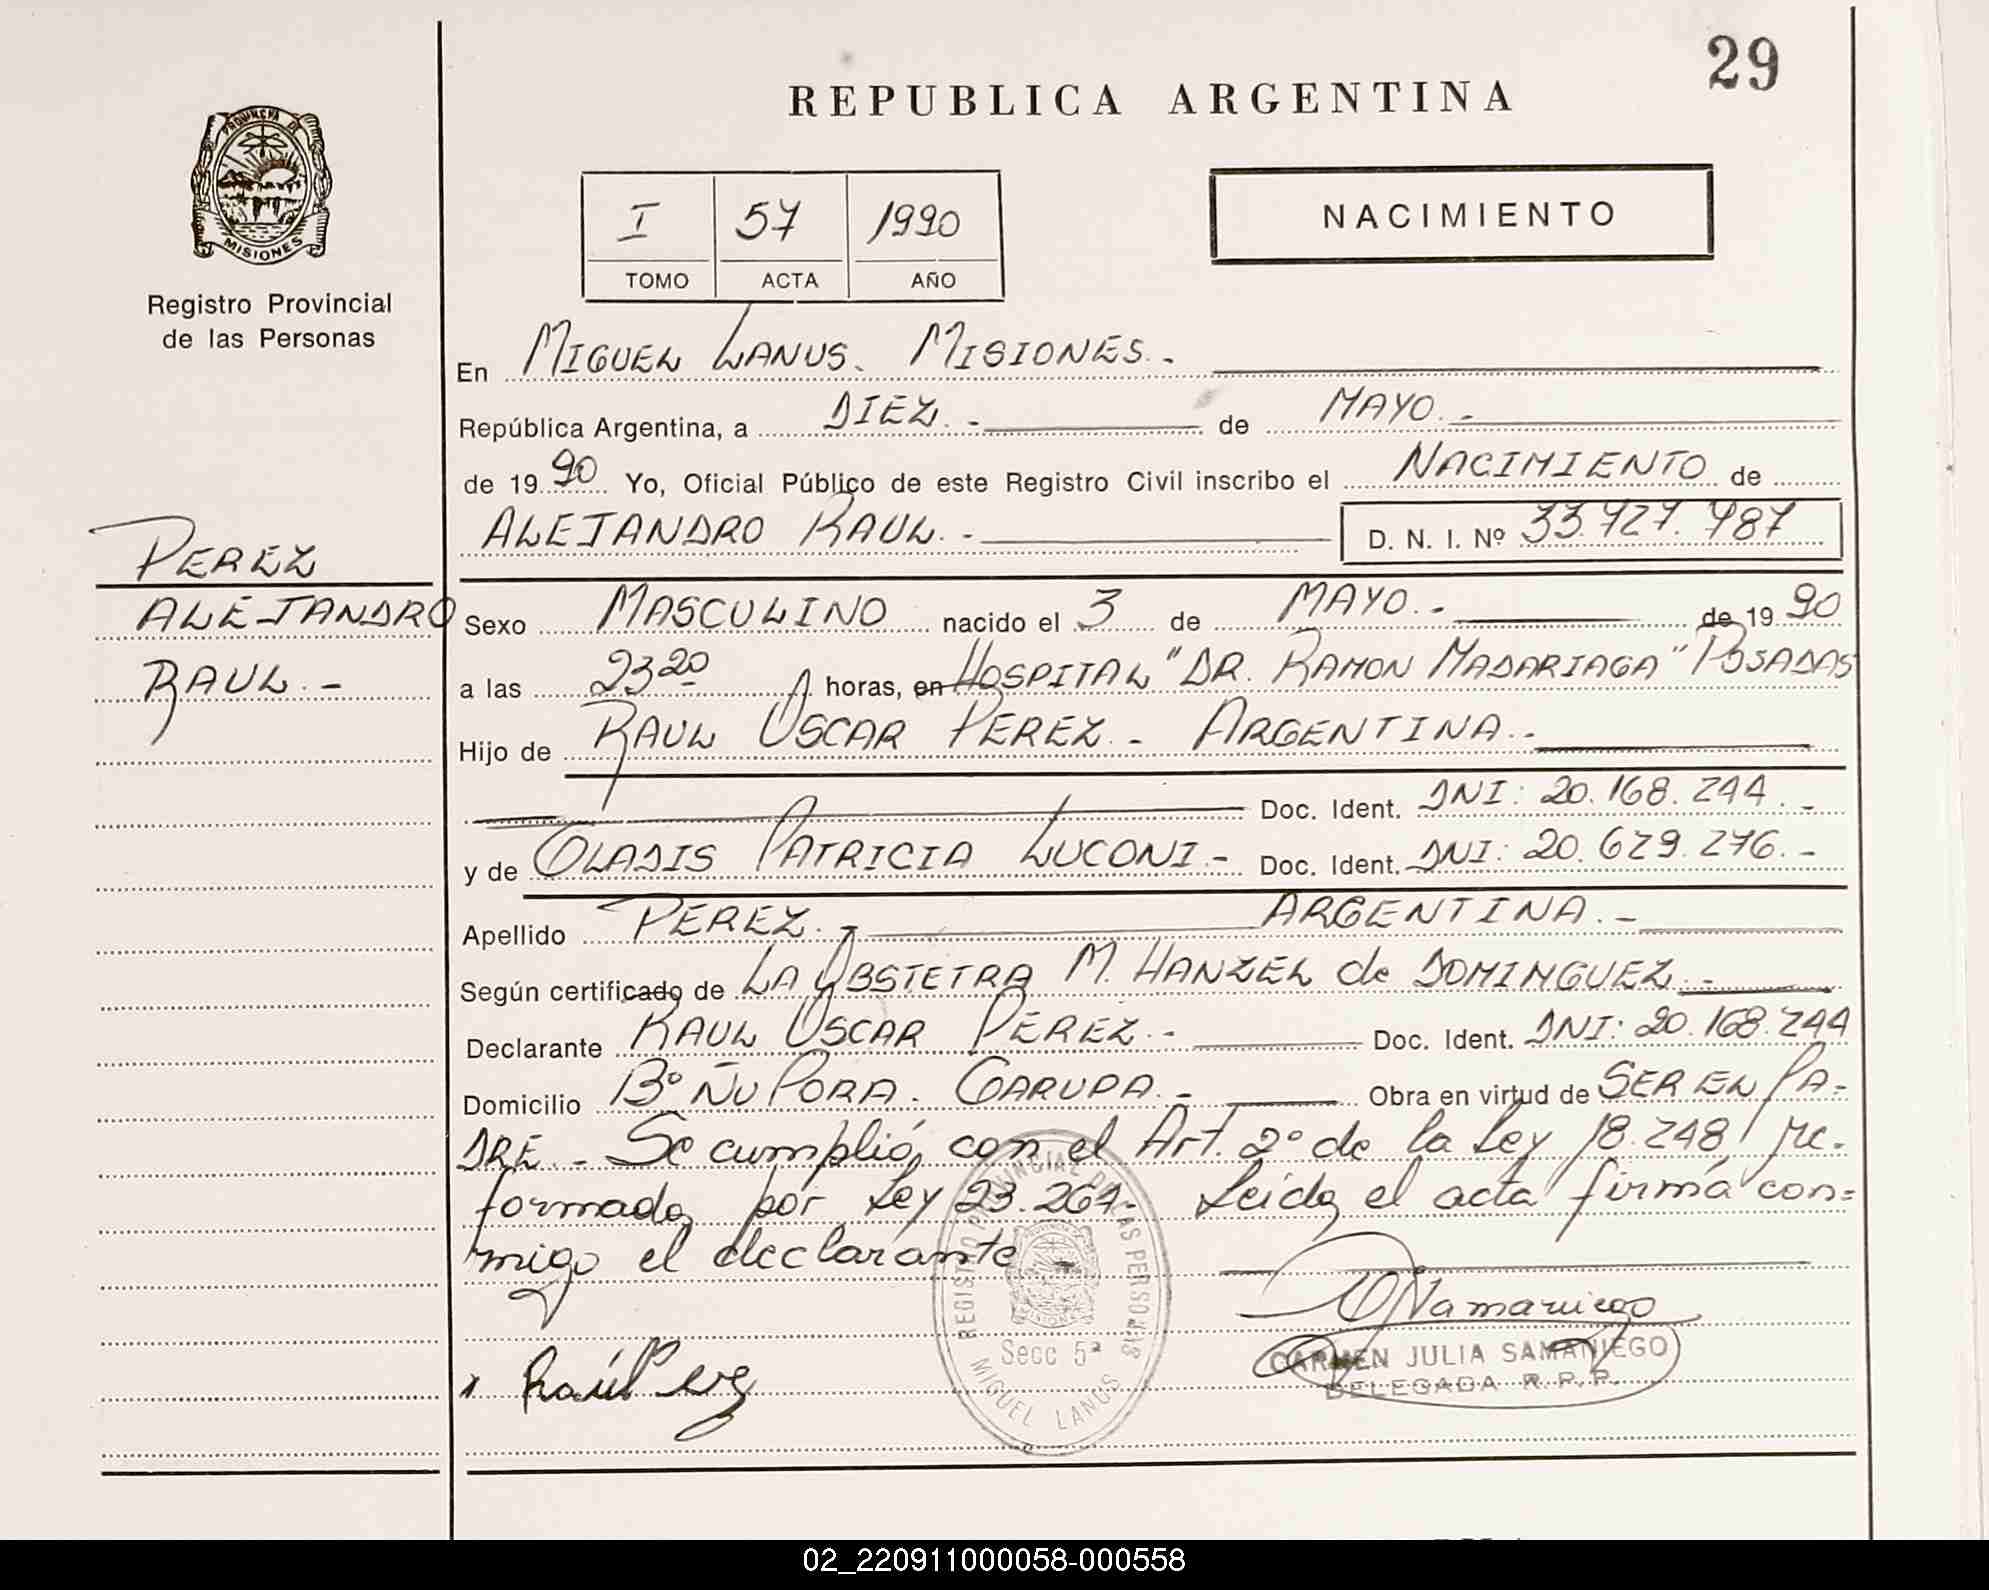 29
REPUBLICA ARGENTINA
PROVINCIA DE
MISIONES
Registro Provincial
de las Personas
I 57 1990
TOMO ACTA AÑO
NACIMIENTO
En MIGUEL LANUS. MISIONES.-
República Argentina, a DIEZ.- de MAYO.-
de 1990 Yo, Oficial Público de este Registro Civil inscribo el NACIMIENTO de
ALEJANDRO RAUL.- D. N. I. Nº 33.927.987
PEREZ
ALEJANDRO
RAUL.-
Sexo MASCULINO nacido el 3 de MAYO.- de 1990
a las 23 20 horas, en HOSPITAL "DR. RAMON MADARIAGA" POSADAS
Hijo de RAUL OSCAR PEREZ.- ARGENTINA.-
Doc. Ident. DNI: 20.168.244.-
y de GLADIS PATRICIA LUCONI.- Doc. Ident. DNI: 20.629.276.-
Apellido PEREZ.- ARGENTINA.-
Según certificado de LA OBSTETRA M. HANZEL de DOMINGUEZ.-
Declarante RAUL OSCAR PEREZ.- Doc. Ident. DNI: 20.168.244
Domicilio Bº ÑU PORA. GARUPA.- Obra en virtud de SER EL PA-
DRE.- Se cumplió con el Art. 2º de la Ley 18.248, re-
formada por Ley 23.264- Leida el acta firma con=
migo el declarante.-
Raúl Perez
REGISTRO PROVINCIAL DE LAS PERSONAS
Secc 5ª
MIGUEL LANUS
CARMEN JULIA SAMANIEGO
DELEGADA R.P.P.
02_220911000058-000558